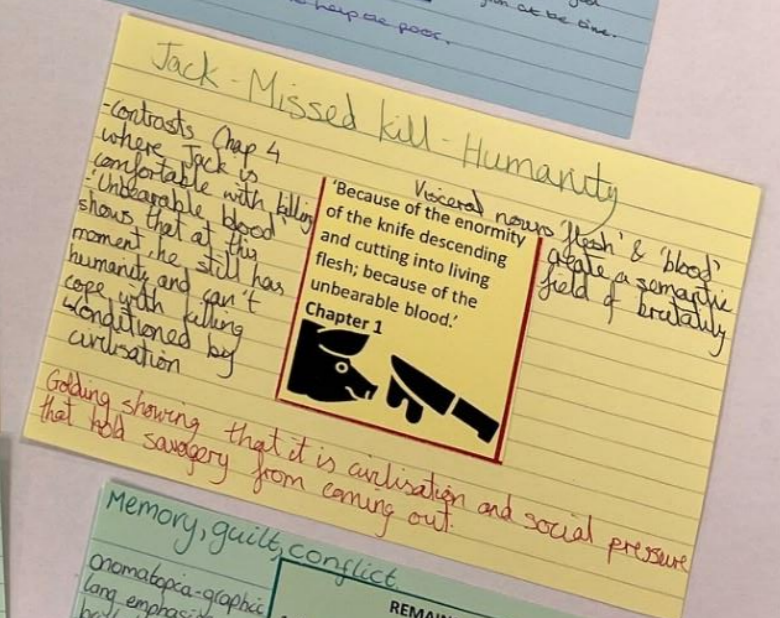 to help the poor.
at the time.
Jack - Missed kill - Humanity
- contrasts Chap 4
where Jack is
comfortable with killing
'Unbearable blood'
shows that at this
moment, he still has
humanity and can't
cope with killing
↳ conditioned by
civilisation
'Because of the enormity
of the knife descending
and cutting into living
flesh; because of the
unbearable blood.'
Chapter 1
Visceral nouns 'flesh' & 'blood'
create a semantic
field of brutality
Golding showing that it is civilisation and social pressure
that hold savagery from coming out.
Memory, guilt, conflict
Onomatopeia - graphic
lang emphasi
REMAIN